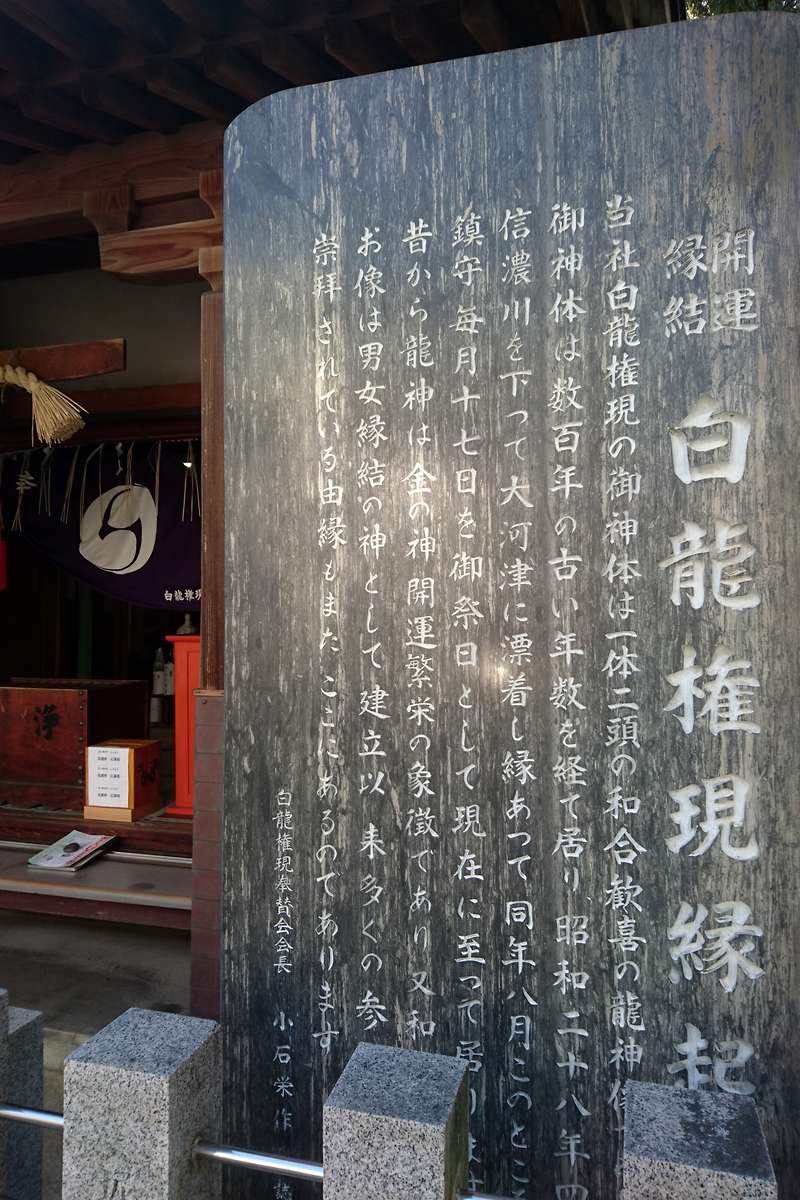 開運
縁結
白龍権現縁起
当社白龍権現の御神体は一体二頭の和合歓喜の龍神
御神体は数百年の古い年数を経て居り、昭和二十八年四
信濃川を下つて大河津に漂着し縁あつて同年八月このところ
鎮守毎月十七日を御祭日として現在に至って居りま
昔から龍神は金の神開運繁栄の象徴であり又和
お像は男女縁結の神として建立以来多くの参
崇拝されている由縁もまたここにあるのであります
白龍権現奉賛会会長 小石栄作
白龍権現
浄